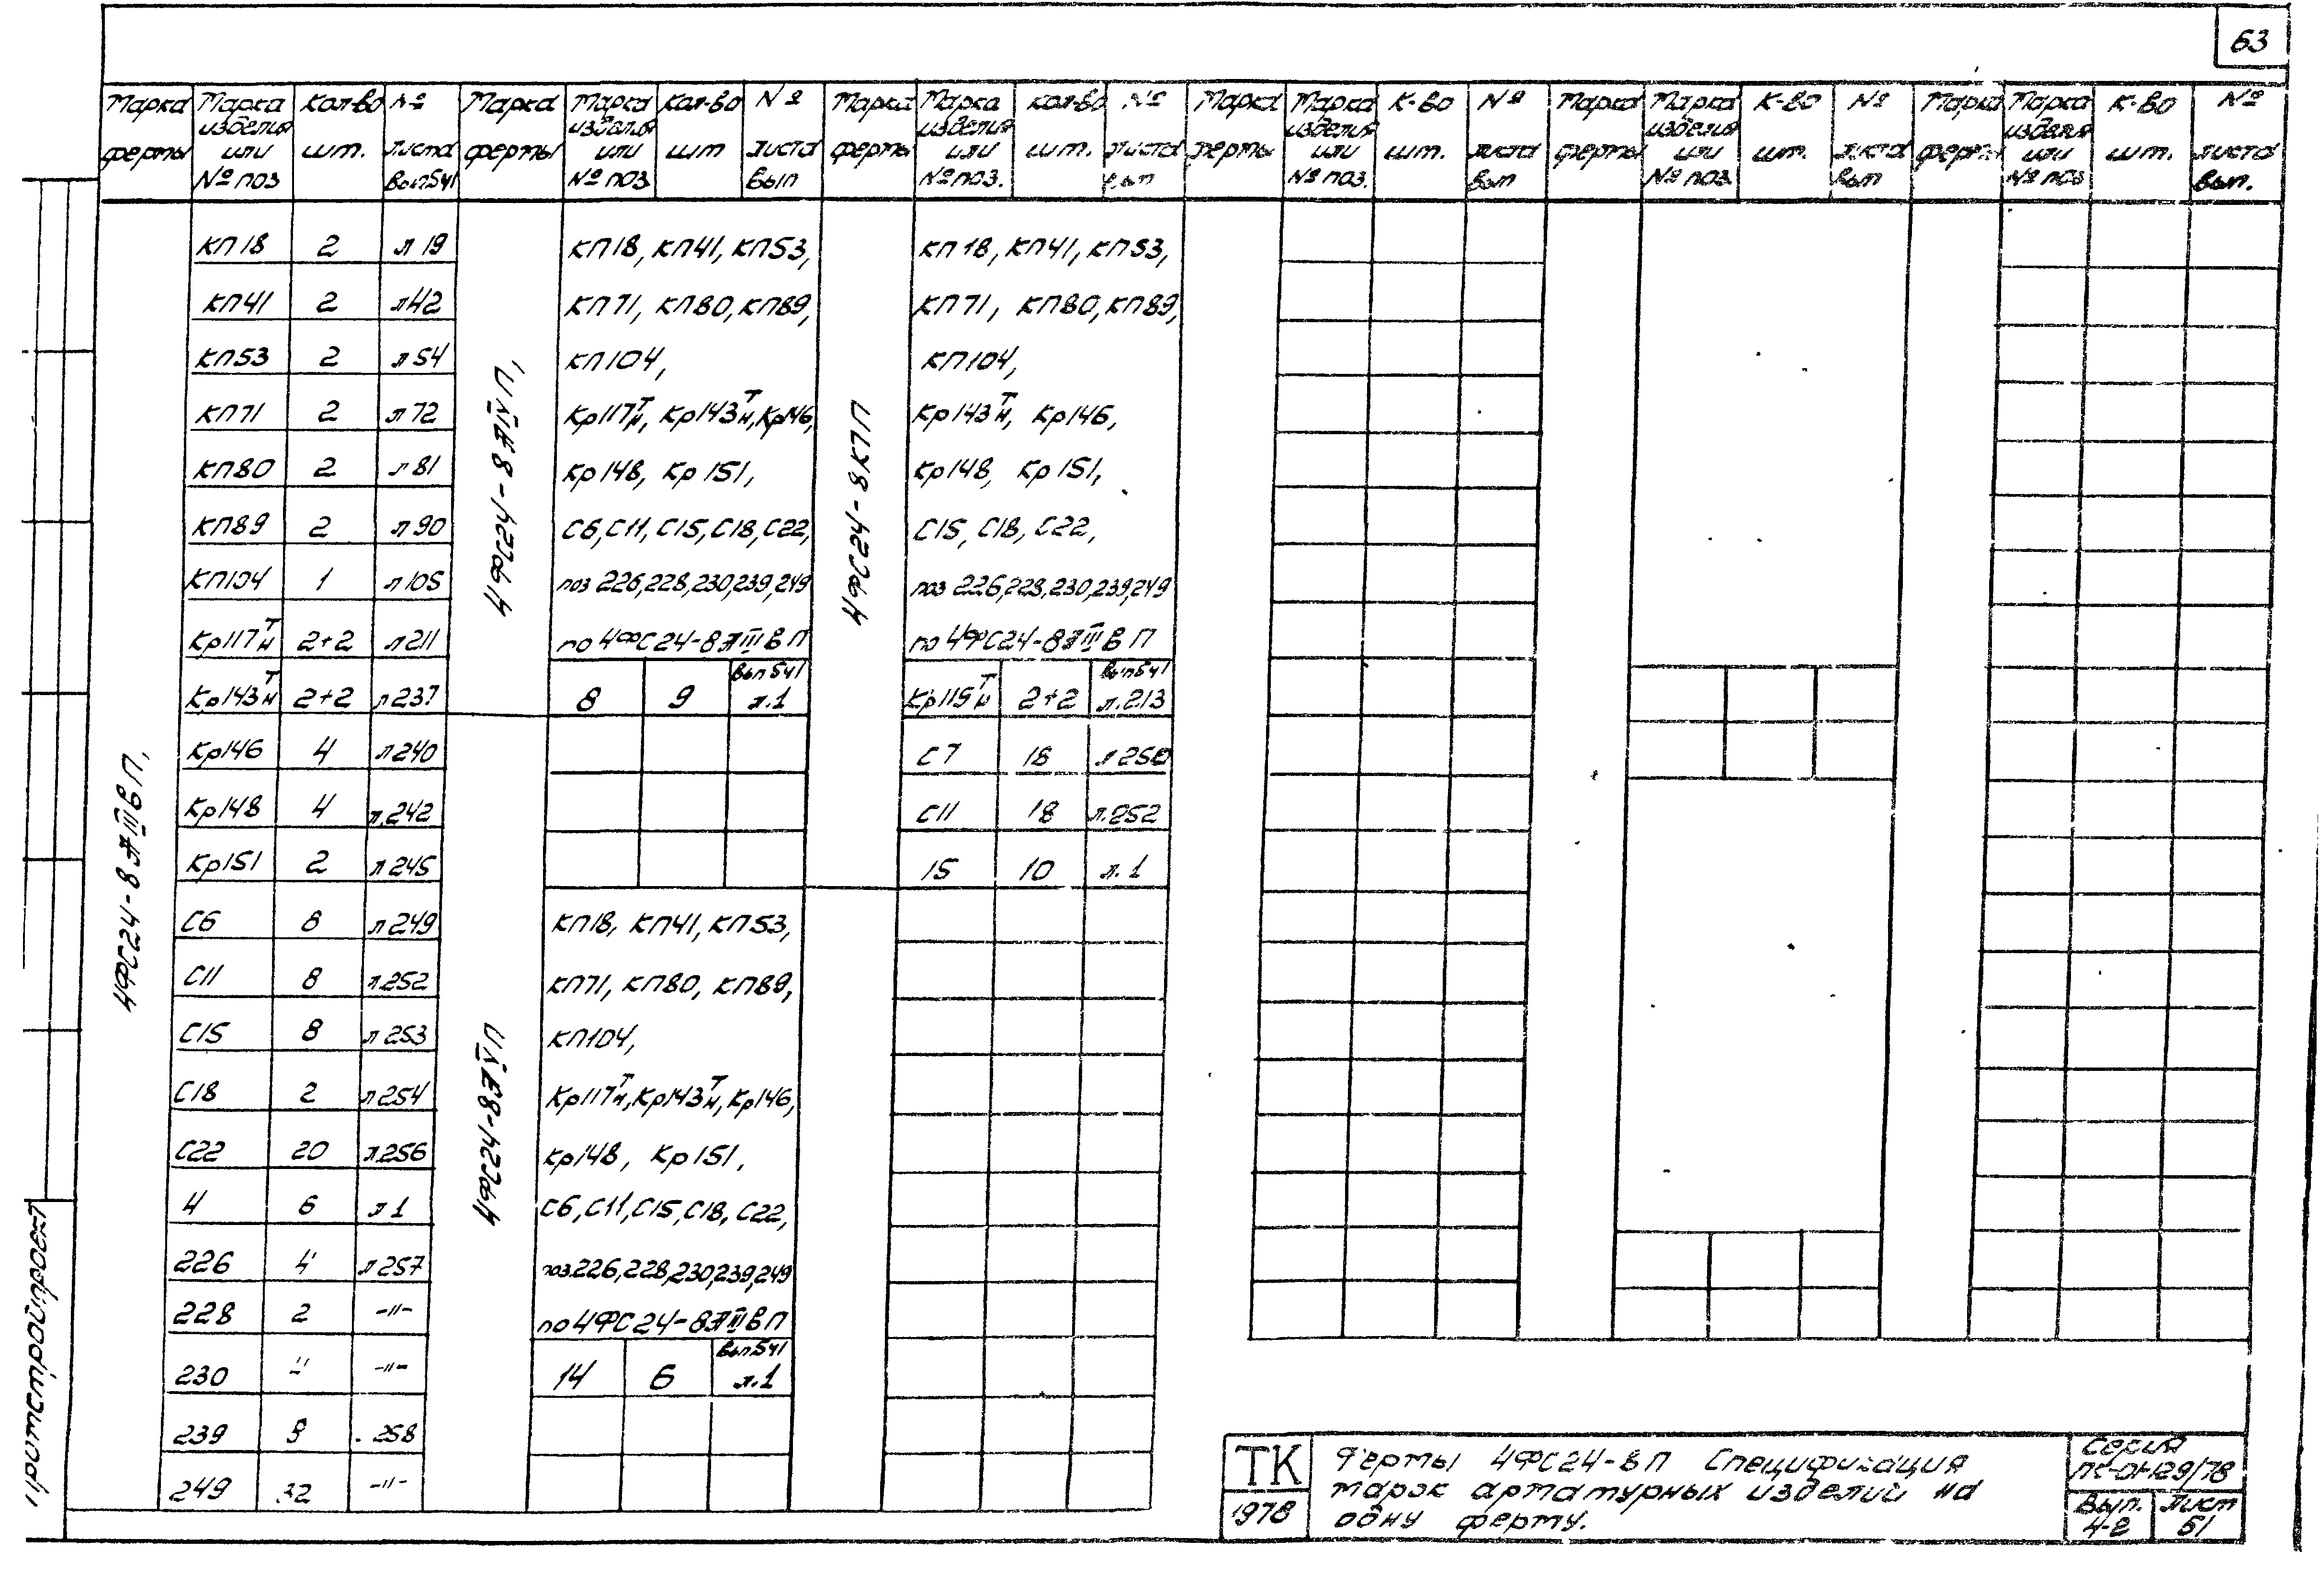 63
Марка фермы | Марка изделия или № поз | Кол-во шт. | № листа вып5ч1 | Марка фермы | Марка изделия или № поз | Кол-во шт | № листа вып | Марка фермы | Марка изделия или № поз. | Кол-во шт. | № листа вып | Марка фермы | Марка изделия или № поз. | К-во шт. | № листа вып | Марка фермы | Марка изделия или № поз. | К-во шт. | № листа вып | Марка фермы | Марка изделия или № поз | К-во шт. | № листа вып.
4ФС24-8АIIIвП,
КП18 2 л 19
КП41 2 л42
КП53 2 л 54
КП71 2 л 72
КП80 2 л 81
КП89 2 л 90
КП104 1 л 105
Кр117Тн 2+2 л 211
Кр143Тн 2+2 л 237
Кр146 4 л 240
Кр148 4 л.242
Кр151 2 л 245
С6 8 л 249
С11 8 л.252
С15 8 л 253
С18 2 л 254
С22 20 л.256
4 6 л 1
226 4 л 257
228 2 -"-
230 -"-
239 258
249 32 -"-
4ФС24-8АIVП,
КП18, КП41, КП53,
КП71, КП80, КП89,
КП104,
Кр117Тн, Кр143Тн, Кр146,
Кр148, Кр151,
С6, С11, С15, С18, С22,
поз 226, 228, 230, 239, 249
по 4ФС24-8АIIIв П
8 9 вып5ч1 л.1
4ФС24-8АVП
КП18, КП41, КП53,
КП71, КП80, КП89,
КП104,
Кр117Тн, Кр143Тн, Кр146,
Кр148, Кр151,
С6, С11, С15, С18, С22,
поз.226, 228, 230, 239, 249
по 4ФС24-8АIIIвП
14 6 вып.5ч1 л.1
4ФС24-8К7П
КП18, КП41, КП53,
КП71, КП80, КП89,
КП104,
Кр143Тн, Кр146,
Кр148, Кр151,
С15, С18, С22,
поз 226, 228, 230, 239, 249
по 4ФС24-8АIIIв П
Кр119Тн 2+2 вып5ч1 л.213
С7 18 л 250
С11 18 л.252
15 10 л. 1
Притстройпроект
ТК
1978
Фермы 4ФС24-8П Спецификация
марок арматурных изделий на
одну ферму.
Серия
ПК-01-129/78
Вып. Лист
4-2 51